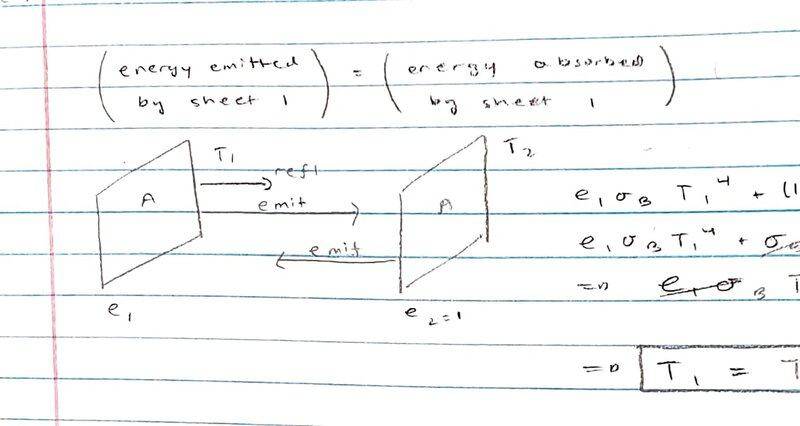 (energy emitted by sheet 1) = (energy absorbed by sheet 1)
T₁
T₂
refl
A
emit
A
emit
e₁
e₂=1
e₁ σ_B T₁⁴ + (1
e₁ σ_B T₁⁴ + σ
=> e₁ σ_B T
=> T₁ = T